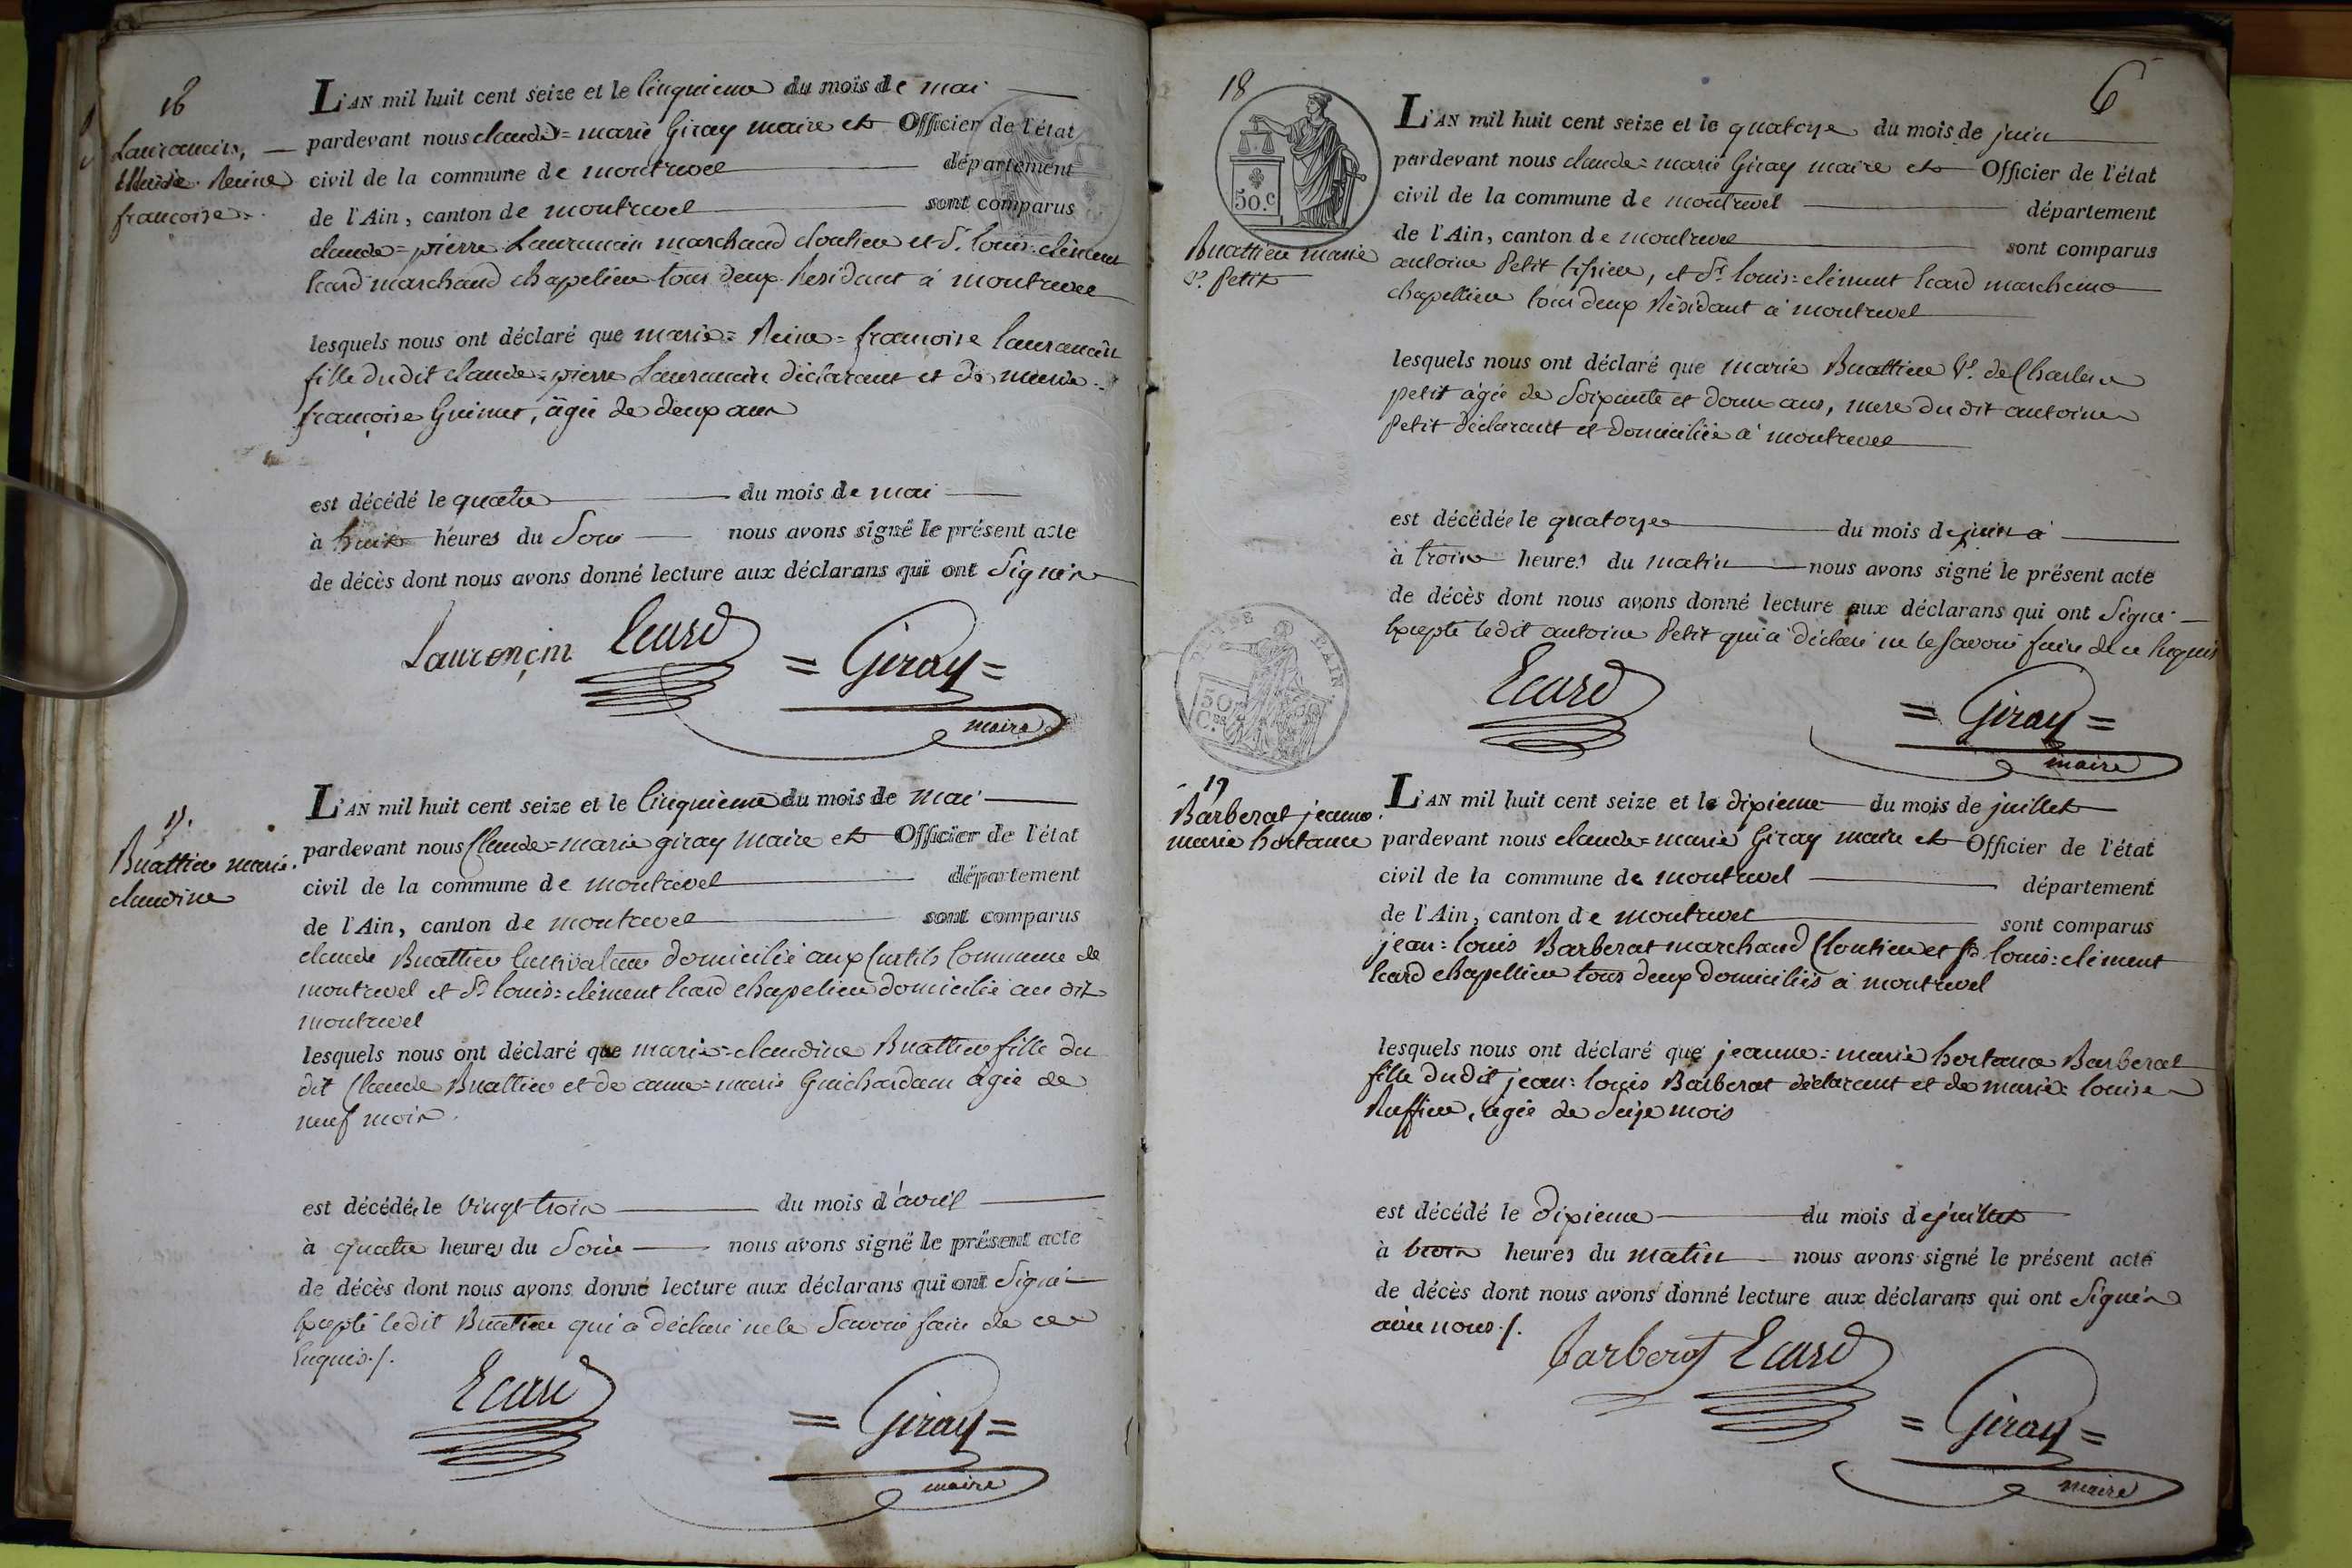 16
Laurancin,
Marie Reine
francoise
L'AN mil huit cent seize et le Cinquieme du mois de mai
pardevant nous claude = marie Giray maire et Officier de l'état
civil de la commune de montrevel département
de l'Ain, canton de montrevel sont comparus
claude = pierre Laurancin marchand Cloutier et Sr. louis = clément
Ecard marchand chapelier tous deux Residant à montrevel
lesquels nous ont déclaré que marie = Reine = francoise laurancin
fille dudit claude = pierre Laurancin déclarant et de
françoise Guimet, âgée de deux ans
est décédé le quatre du mois de mai
à huit heures du Soir nous avons signé le présent acte
de décès dont nous avons donné lecture aux déclarans qui ont Signés
Laurençin Ecard = Giray =
maire
17.
Buattier marie
claudine
L'AN mil huit cent seize et le Cinquieme du mois de mai
pardevant nous Claude = marie giray maire et Officier de l'état
civil de la commune de montrevel département
de l'Ain, canton de montrevel sont comparus
claude Buattier Cultivateur domicilié aux Curtils Commune de
montrevel et Sr. louis = clément Ecard chapelier domicilié au dit
montrevel
lesquels nous ont déclaré que marie = claudine Buattier fille du
dit Claude Buattier et de anne = marie Guichardan agée de
neuf mois.
est décédée le vingt trois du mois d'avril
à quatre heures du Soir nous avons signé le présent acte
de décès dont nous avons donné lecture aux déclarans qui ont Signé
Excepté ledit Buattier qui a déclaré ne le Savoir faire de ce
Enquis./.
Ecard = Giray =
maire
18
6
50.c
Buattier marie
Ve. Petit
L'AN mil huit cent seize et le quatorze du mois de juin
pardevant nous claude = marie Giray maire et Officier de l'état
civil de la commune de montrevel département
de l'Ain, canton de montrevel sont comparus
antoine Petit tissier, et Sr. louis = clément Ecard marchand
chapellier tous deux Résidant à montrevel
lesquels nous ont déclaré que marie Buattier Ve. de Charles
petit agée de Soixante et douze ans, mere du dit antoine
Petit déclarant et domiciliée à montrevel
est décédée le quatorze du mois de juin à
à trois heures du matin nous avons signé le présent acte
de décès dont nous avons donné lecture aux déclarans qui ont Signé
Excepté ledit antoine Petit qui a déclaré ne le savoir faire de ce Enquis
50
Cs.
AIN
Ecard = Giray =
maire
19
Barberat jeanne
marie hortance
L'AN mil huit cent seize et le dixieme du mois de juillet
pardevant nous claude = marie Giray maire et Officier de l'état
civil de la commune de montrevel département
de l'Ain, canton de montrevel sont comparus
jean = louis Barberat marchand Cloutier et Sr. louis = clément
Ecard chapellier tous deux domiciliés à montrevel
lesquels nous ont déclaré que jeanne = marie hortance Barberat
fille dudit jean = louis Barberat déclarant et de marie = louise
Ruffier, agée de Seize mois
est décédé le dixieme du mois de juillet
à trois heures du matin nous avons signé le présent acte
de décès dont nous avons donné lecture aux déclarans qui ont Signés
avec nous./.
Barberat Ecard
= Giray =
maire